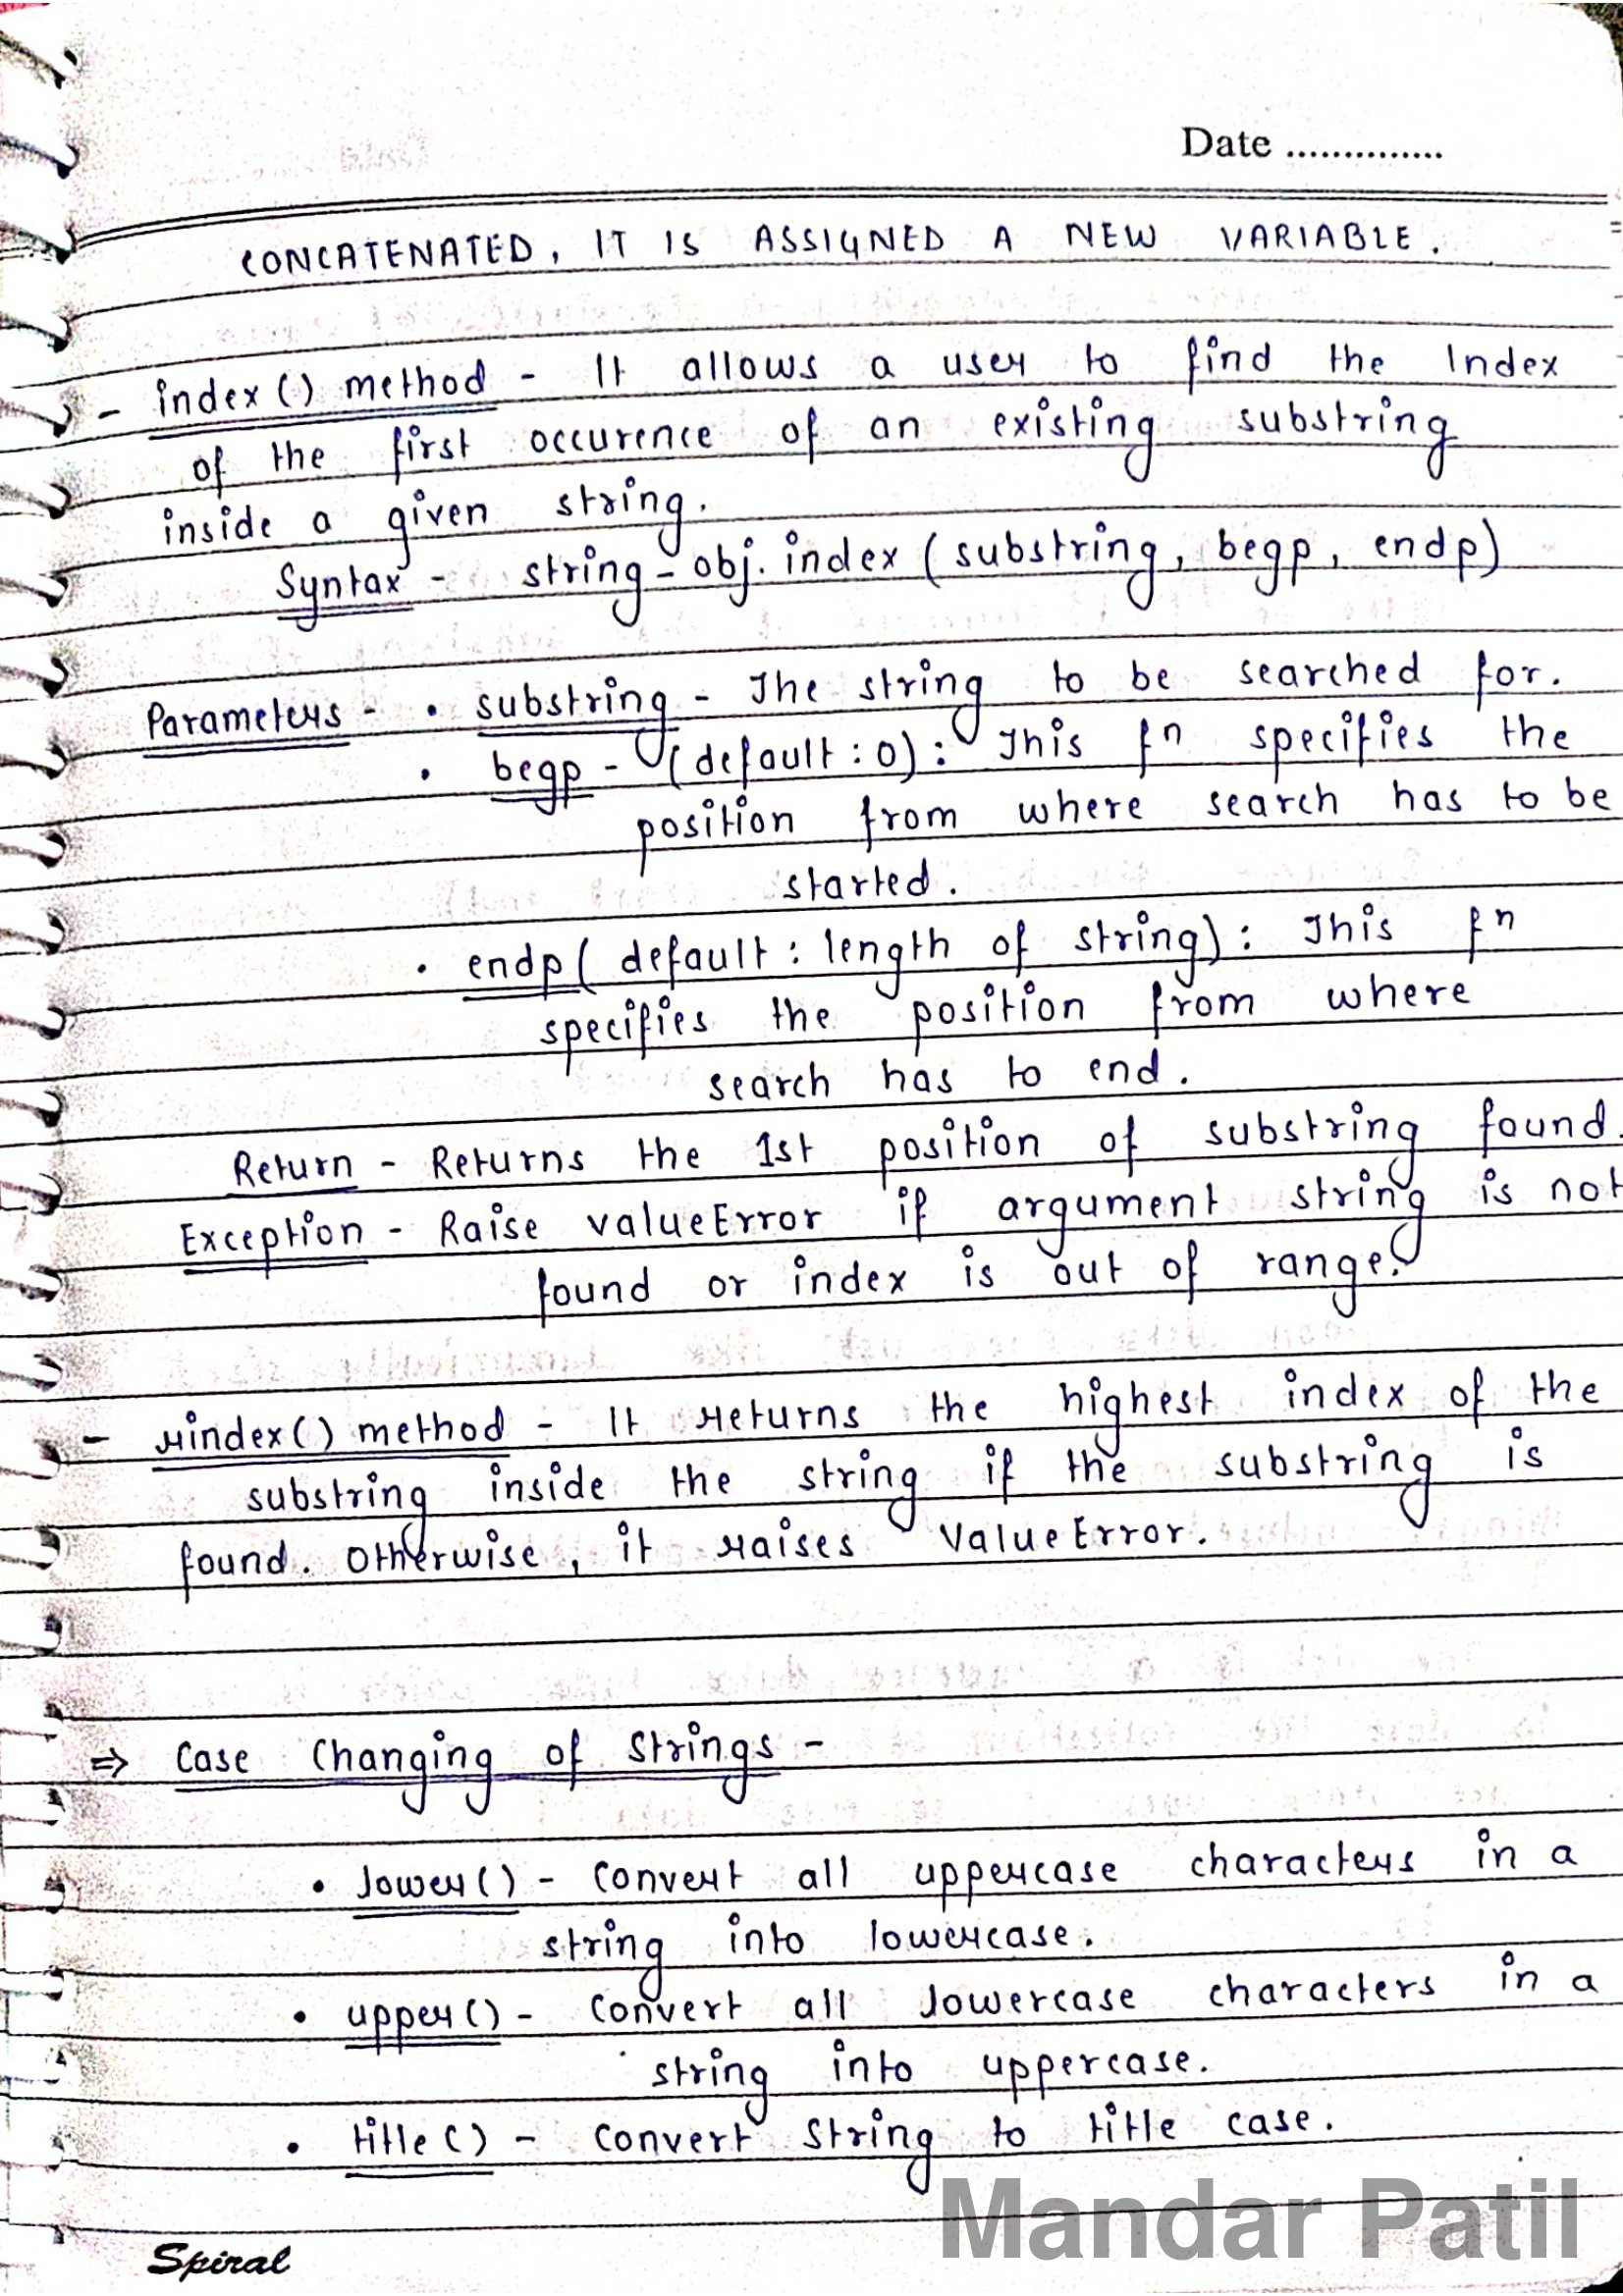 Date ..............
CONCATENATED, IT IS ASSIGNED A NEW VARIABLE.
- index() method - It allows a user to find the Index
of the first occurence of an existing substring
inside a given string.
Syntax - string-obj.index (substring, begp, endp)
Parameters - • substring - The string to be searched for.
• begp - (default : 0) : This fn specifies the
position from where search has to be
started.
• endp ( default : length of string) : This fn
specifies the position from where
search has to end.
Return - Returns the 1st position of substring found.
Exception - Raise valueError if argument string is not
found or index is out of range.
- rindex() method - It returns the highest index of the
substring inside the string if the substring is
found. Otherwise, it raises ValueError.
⇒ Case Changing of Strings -
• lower() - Convert all uppercase characters in a
string into lowercase.
• upper() - Convert all lowercase characters in a
string into uppercase.
• title() - Convert string to title case.
Mandar Patil
Spiral